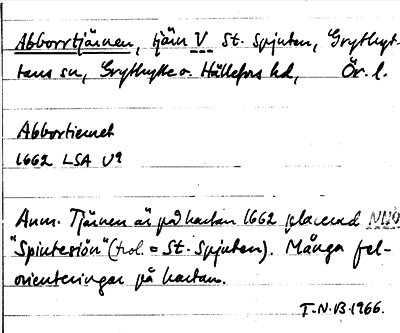 Abborrtjärnen, tjärn V St. Spjuten, Grythyt-
tans sn, Grythytte o. Hällefors hd, Ör. l.
Abbortiernet
1662 LSA
Anm. Tjärnen är på kartan 1662 placerad NNO
"Spiutesiön" (trol. = St. Spjuten). Många fel-
orienteringar på kartan.
T.N.B. 1966.